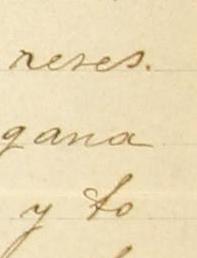 reses.
gana
y to